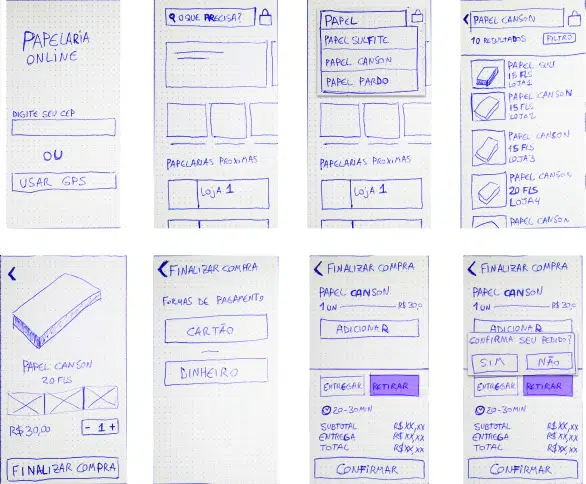 PAPELARIA
ONLINE
DIGITE SEU CEP
OU
USAR GPS
O QUE PRECISA?
PAPELARIAS PROXIMAS
LOJA 1
PAPEL
PAPEL SULFITE
PAPEL CANSON
PAPEL PARDO
PAPELARIAS PROXIMAS
LOJA 1
PAPEL CANSON
10 RESULTADOS
FILTRO
PAPEL
15 FLS
LOJA 1
PAPEL CANSON
15 FLS
LOJA 2
PAPEL CANSON
15 FLS
LOJA 3
PAPEL CANSON
20 FLS
LOJA 4
PAPEL CANSON
PAPEL CANSON
20 FLS
R$30,00
- 1 +
FINALIZAR COMPRA
FINALIZAR COMPRA
FORMAS DE PAGAMENTO
CARTÃO
DINHEIRO
FINALIZAR COMPRA
PAPEL CANSON
1 UN R$ 30,0
ADICIONAR
ENTREGAR RETIRAR
20-30MIN
SUBTOTAL R$XX,XX
ENTREGA R$XX,XX
TOTAL R$XX,XX
CONFIRMAR
FINALIZAR COMPRA
PAPEL CANSON
1 UN R$ 30,0
ADICIONAR
CONFIRMA SEU PEDIDO?
SIM NÃO
ENTREGAR RETIRAR
20-30MIN
SUBTOTAL R$XX,XX
ENTREGA R$XX,XX
TOTAL R$XX,XX
CONFIRMAR